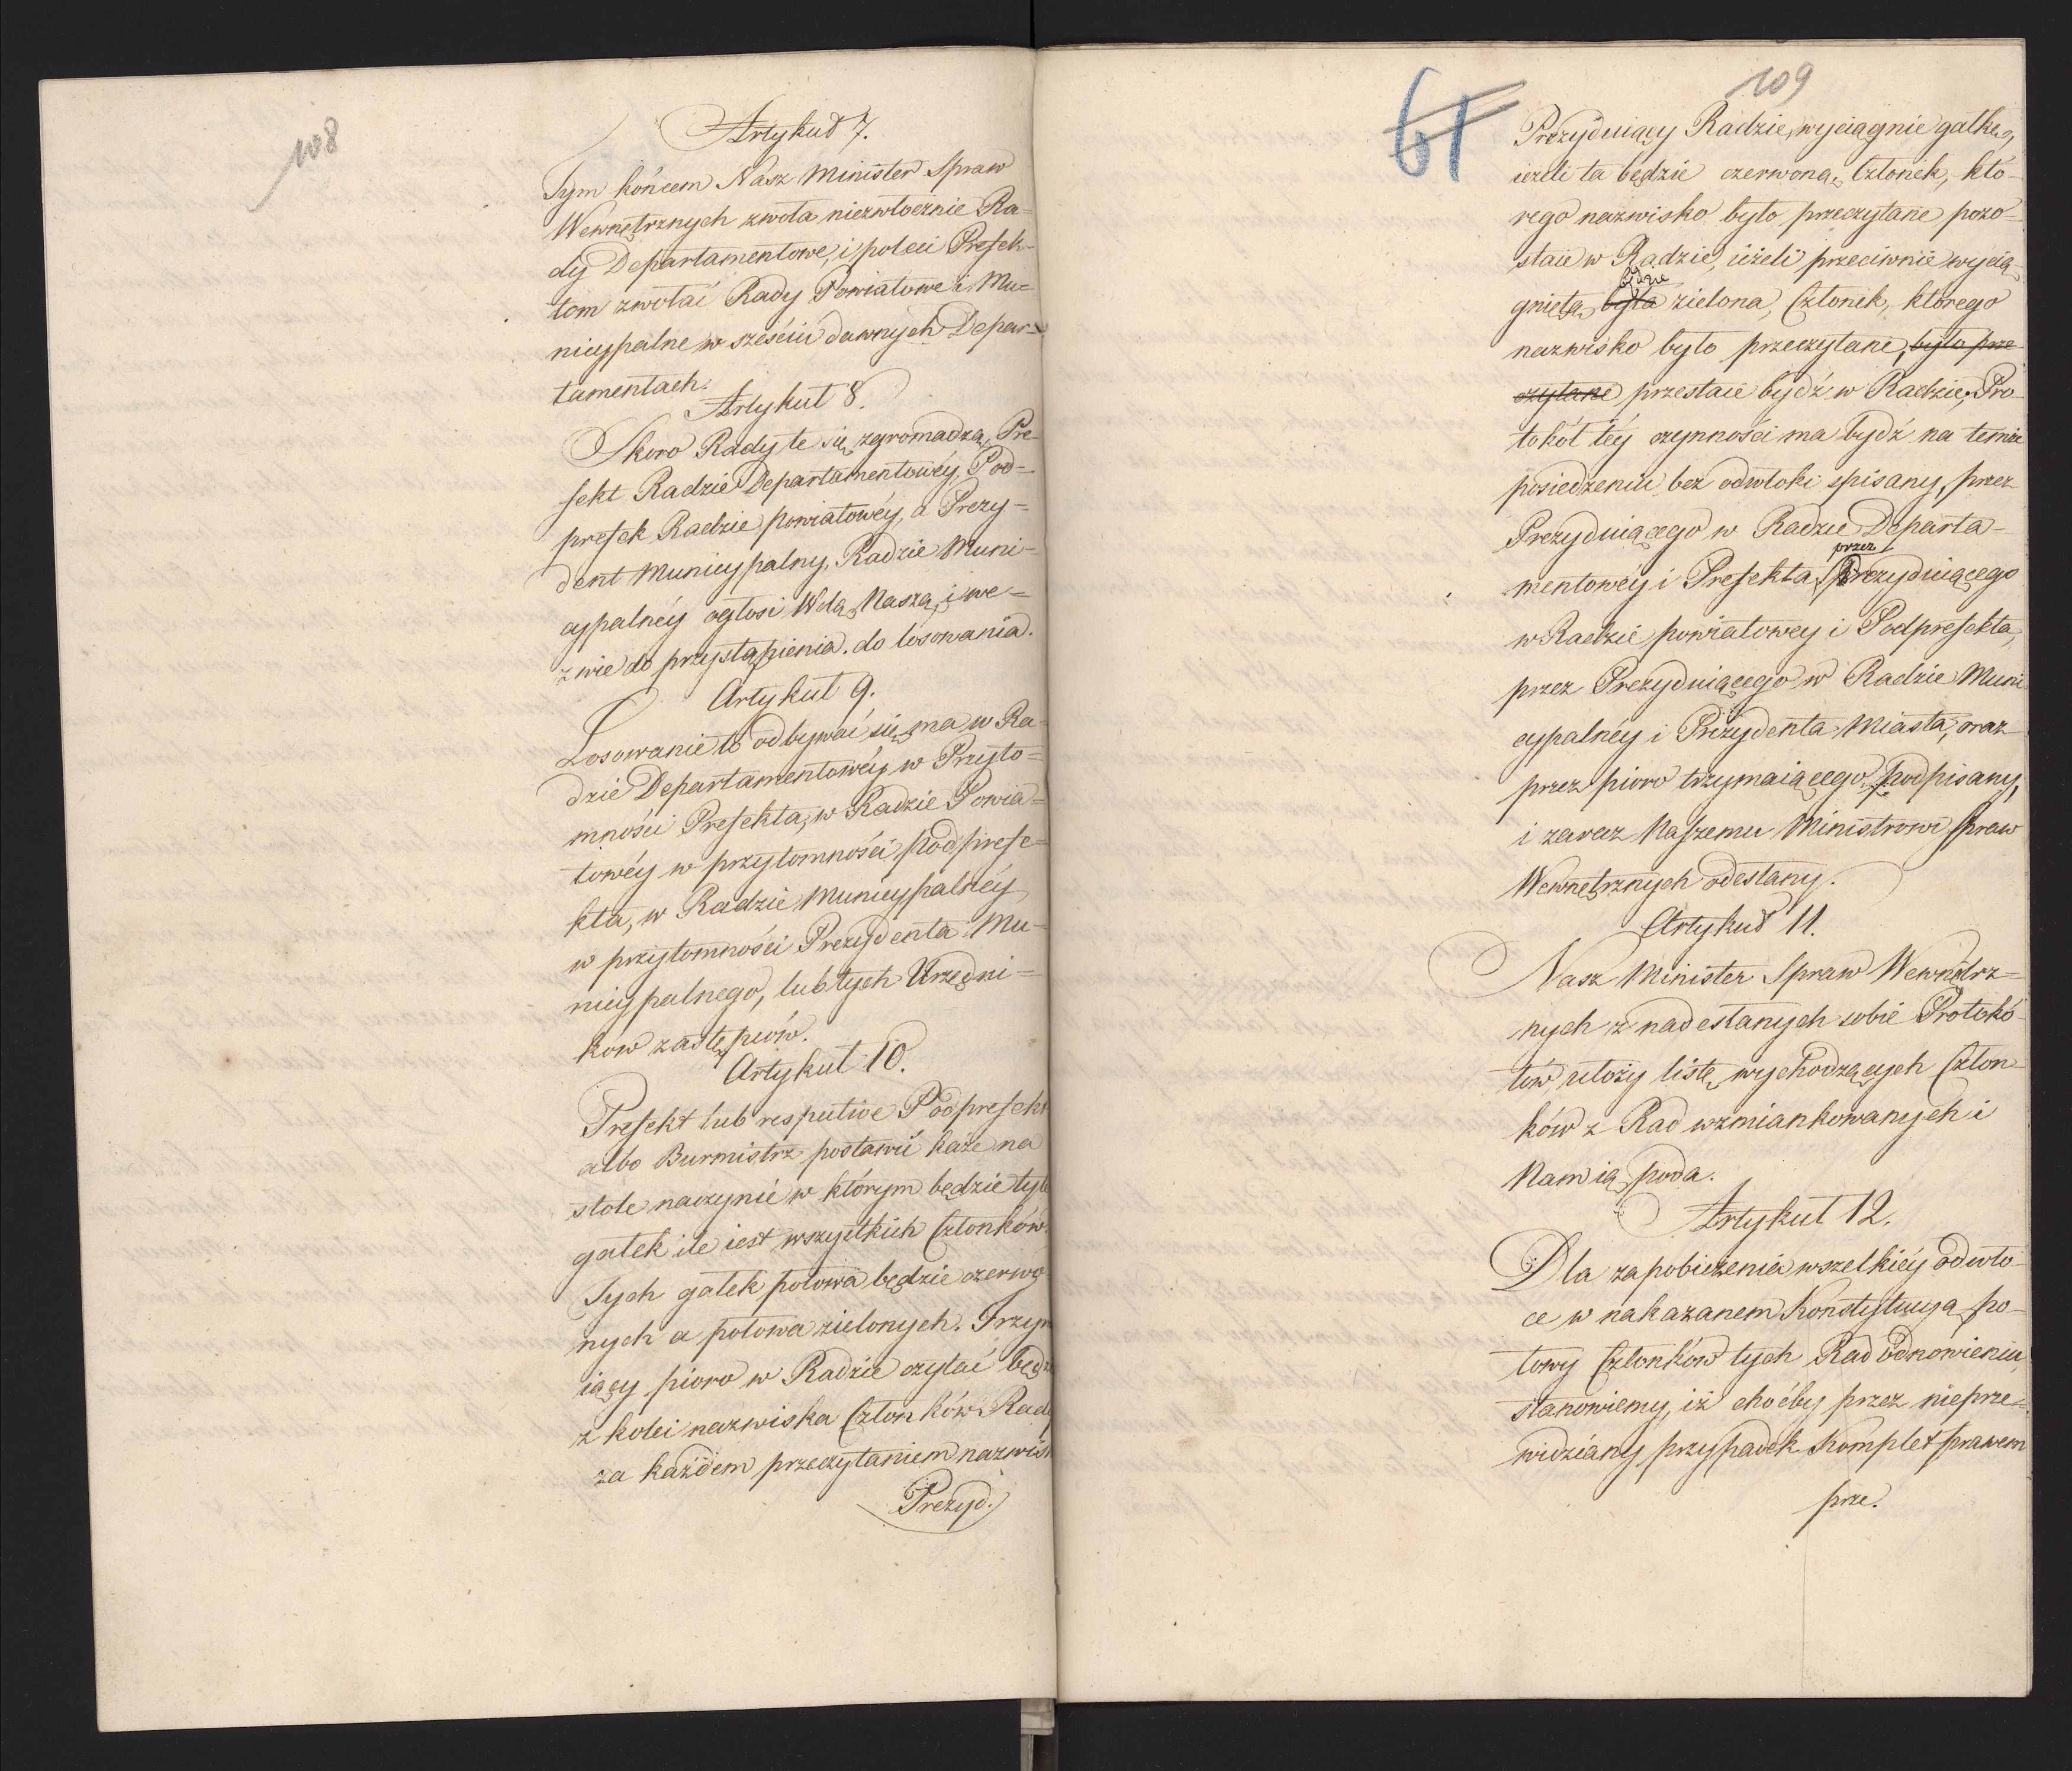 108
Artykuł 7.
Tym końcem Nasz Minister Spraw
Wewnętrznych zwoła niezwłocznie Ra=
dy Departamentowe, i poleci Prefek-
tom zwołać Rady Powiatowe i Mu=
nicypalne w sześciu dawnych Depar-
tamentach.
Artykuł 8.
Skoro Rady te się zgromadzą, Pre-
fekt Radzie Departamentowéy, Pod=
prefek Radzie powiatowéy, a Prezy=
dent Municypalny, Radzie Muni-
cypalnéy ogłosi Wolą Naszą, i we=
zwie do przystąpienia do losowania.
Artykuł 9.
Losowanie to odbywać się ma w Ra-
dzie Departamentowéy w Przyto=
mności Prefekta, w Radzie Powia=
towéy w przytomności Podprefe=
kta, w Radzie Municypalnéy
w przytomności Prezydenta Mu-
nicypalnego, lub tych Urzędni=
kow zastępców.
Artykuł 10.
Prefekt lub respective Podprefekt
albo Burmistrz postawić każe na
stole naczynie w którym będzie tyle
gałek ile iest wszystkich Członków.
Tych gałek połowa będzie czerwo
nych a połowa zielonych. Trzym
iący pioro w Radzie czytać będz
z kolei nazwiska Członków Rady
za każdem przeczytaniem nazwisk
Prezyd.
61
109
Prezyduiący Radzie, wyciągnie gałkę,
ieżeli ta będzie czerwoną, Członek, któ-
rego nazwisko było przeczytane pozo-
staie w Radzie, ieżeli przeciwnie wycią-
będzie
gnięta była zielona, Członek, którego
nazwisko było przeczytane, było prze
czytane przestaie bydź w Radzie, Pro-
tokół téy czynności ma bydź na temże
posiedzeniu bez odwłoki spisany, przez
Prezyduiącego w Radzie Departa-
przez
mentowéy i Prefekta, Prezyduiącego
w Radzie powiatowey i Podprefekta,
przez Prezyduiącego w Radzie Muni
cypalnéy i Prezydenta Miasta, oraz
przez pioro trzymaiącego podpisany,
i zaraz Naszemu Ministrowi Spraw
Wewnętrznych odesłany.
Artykuł 11.
Nasz Minister Spraw Wewnętrz=
nych z nadesłanych sobie Protokó-
łów ułoży listę wychodzących Człon-
ków z Rad wzmiankowanych i
Nam ią poda.
Artykuł 12.
Dla zapobieżenia wszelkiéy odwło-
ce w nakazanem Konstytucyą po-
łowy Członków tych Rad odnowieniu,
stanowiemy, iż choćby przez nieprze=
widziany przypadek komplet prawem
prze.